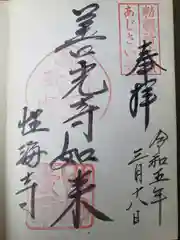 奉拝
令和五年
三月十八日
善光寺如来
性海寺
あじさい